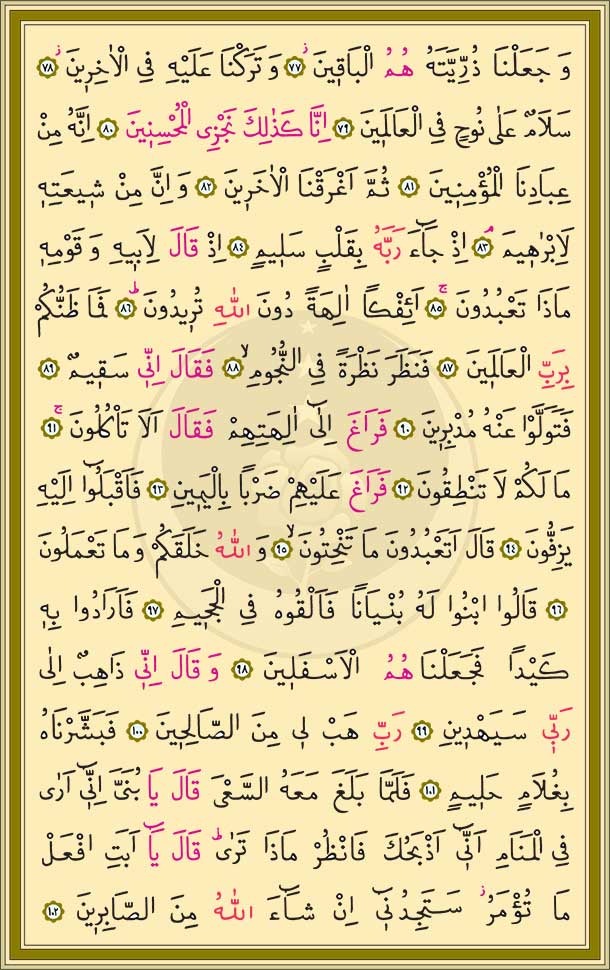 وَ جَعَلْنَا ذُرِّيَّتَهُ هُمُ الْبَاقٖينَ ﴿٧٧﴾ وَ تَرَكْنَا عَلَيْهِ فِى الْاٰخِرٖينَ ﴿٧٨﴾
سَلَامٌ عَلٰى نُوحٍ فِى الْعَالَمٖينَ ﴿٧٩﴾ اِنَّا كَذٰلِكَ نَجْزِى الْمُحْسِنٖينَ ﴿٨٠﴾ اِنَّهُ مِنْ
عِبَادِنَا الْمُؤْمِنٖينَ ﴿٨١﴾ ثُمَّ اَغْرَقْنَا الْاٰخَرٖينَ ﴿٨٢﴾ وَ اِنَّ مِنْ شٖيعَتِهٖ
لَاِبْرٰهٖيمَ ﴿٨٣﴾ اِذْ جَٓاءَ رَبَّهُ بِقَلْبٍ سَلٖيمٍ ﴿٨٤﴾ اِذْ قَالَ لِاَبٖيهِ وَ قَوْمِهٖ
مَاذَا تَعْبُدُونَ ﴿٨٥﴾ اَئِفْكًا اٰلِهَةً دُونَ اللّٰهِ تُرٖيدُونَ ﴿٨٦﴾ فَمَا ظَنُّكُمْ
بِرَبِّ الْعَالَمٖينَ ﴿٨٧﴾ فَنَظَرَ نَظْرَةً فِى النُّجُومِ ﴿٨٨﴾ فَقَالَ اِنّٖى سَقٖيمٌ ﴿٨٩﴾
فَتَوَلَّوْا عَنْهُ مُدْبِرٖينَ ﴿٩٠﴾ فَرَاغَ اِلٰٓى اٰلِهَتِهِمْ فَقَالَ اَلَا تَاْكُلُونَ ﴿٩١﴾
مَا لَكُمْ لَا تَنْطِقُونَ ﴿٩٢﴾ فَرَاغَ عَلَيْهِمْ ضَرْبًا بِالْيَمٖينِ ﴿٩٣﴾ فَاَقْبَلُٓوا اِلَيْهِ
يَزِفُّونَ ﴿٩٤﴾ قَالَ اَتَعْبُدُونَ مَا تَنْحِتُونَ ﴿٩٥﴾ وَ اللّٰهُ خَلَقَكُمْ وَ مَا تَعْمَلُونَ
﴿٩٦﴾ قَالُوا ابْنُوا لَهُ بُنْيَانًا فَاَلْقُوهُ فِى الْجَحٖيمِ ﴿٩٧﴾ فَاَرَادُوا بِهٖ
كَيْدًا فَجَعَلْنَا هُمُ الْاَسْفَلٖينَ ﴿٩٨﴾ وَ قَالَ اِنّٖى ذَاهِبٌ اِلٰى
رَبّٖى سَيَهْدٖينِ ﴿٩٩﴾ رَبِّ هَبْ لٖى مِنَ الصَّالِحٖينَ ﴿١٠٠﴾ فَبَشَّرْنَاهُ
بِغُلَامٍ حَلٖيمٍ ﴿١٠١﴾ فَلَمَّا بَلَغَ مَعَهُ السَّعْىَ قَالَ يَا بُنَىَّ اِنّٖٓى اَرٰى
فِى الْمَنَامِ اَنّٖٓى اَذْبَحُكَ فَانْظُرْ مَاذَا تَرٰىؕ قَالَ يَٓا اَبَتِ افْعَلْ
مَا تُؤْمَرُؗ سَتَجِدُنٖٓى اِنْ شَٓاءَ اللّٰهُ مِنَ الصَّابِرٖينَ ﴿١٠٢﴾